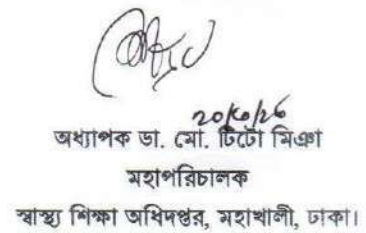 অধ্যাপক ডা. মো. টিটো মিঞা
মহাপরিচালক
স্বাস্থ্য শিক্ষা অধিদপ্তর, মহাখালী, ঢাকা।